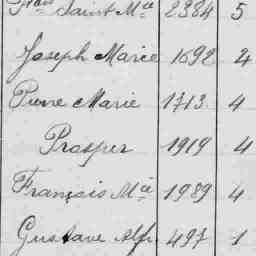 Saint Mie 2384 5
Joseph Marie 1692 4
Pierre Marie 1713 4
Prosper 1919 4
François Mie 1989 4
Gustave Alf. 497 1